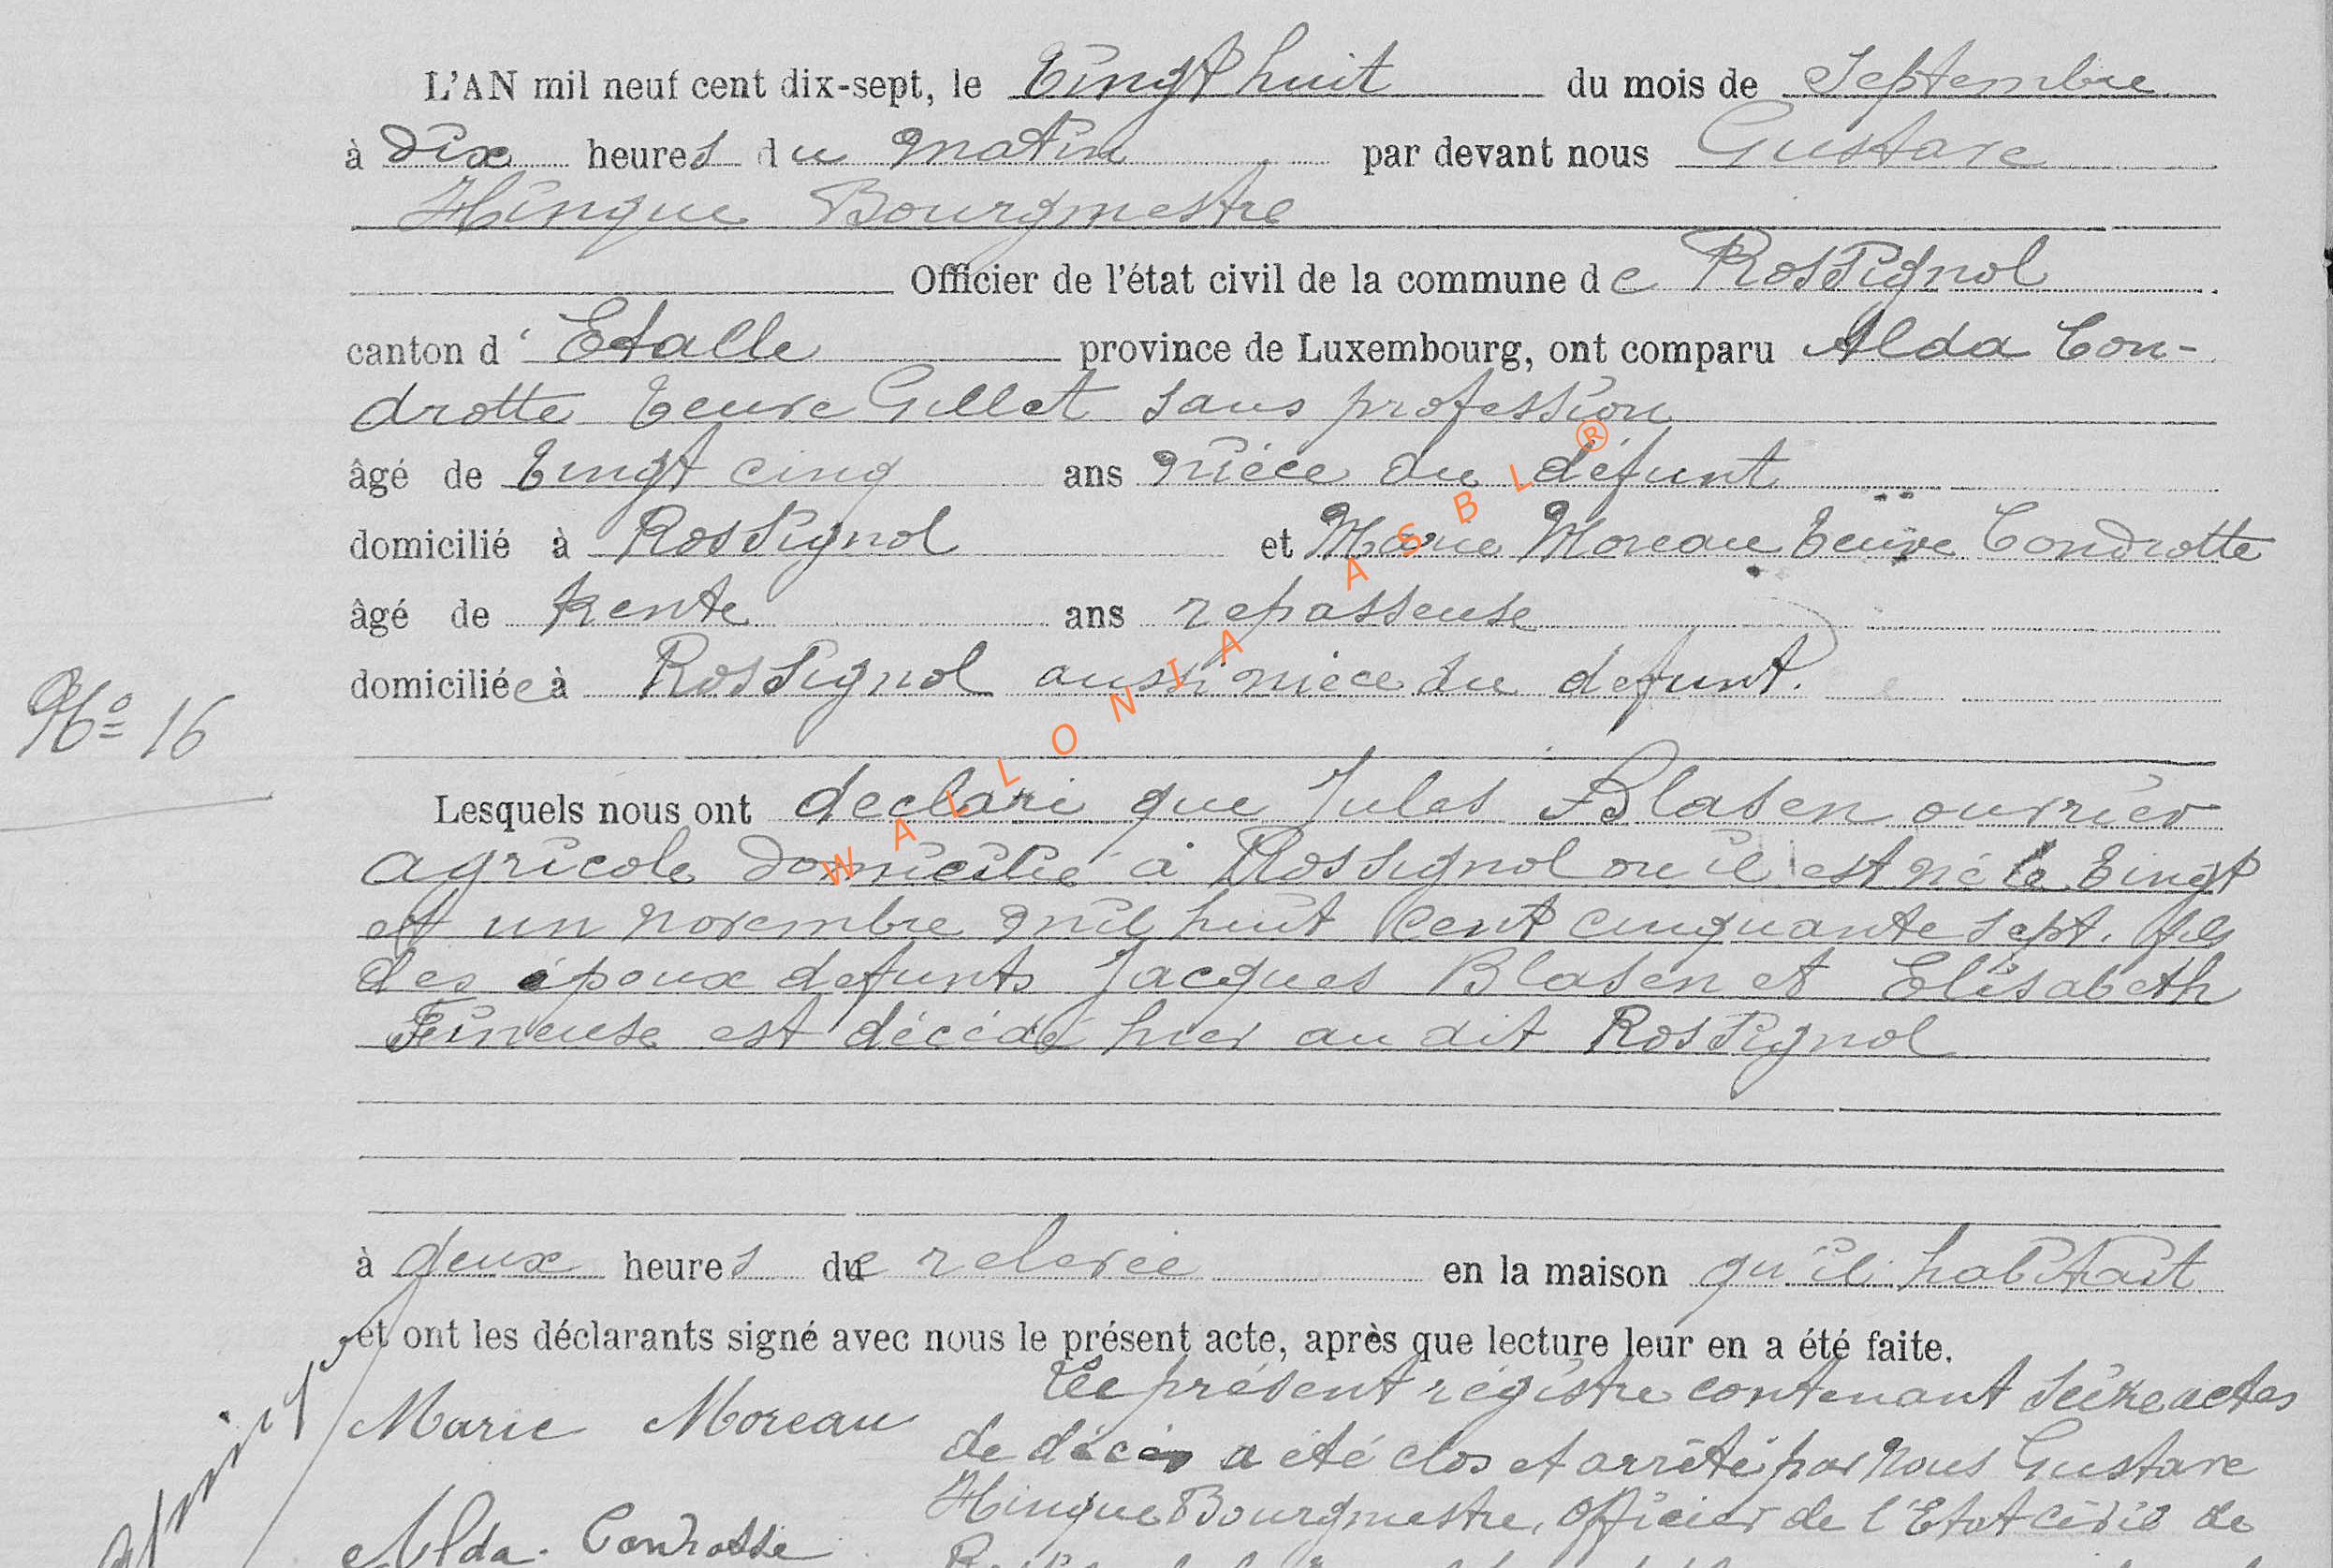 L'AN mil neuf cent dix-sept, le Vingt huit du mois de Septembre
à dix heures du matin par devant nous Gustave
Hinque Bourgmestre
Officier de l'état civil de la commune de Rossignol
canton d' Etalle province de Luxembourg, ont comparu Alda Con-
drotte Veuve Gillet sans profession
âgé de Vingt cinq ans nièce du défunt
domicilié à Rossignol et Marie Moreau Veuve Condrotte
âgé de trente ans repasseuse
domiciliée à Rossignol aussi nièce du defunt.
No 16
Lesquels nous ont declaré que Jules Blasen ouvrier
agricole domicilié à Rossignol ou il est né le Vingt
et un novembre mil huit cent cinquante sept. fils
des époux defunts Jacques Blasen et Elisabeth
est décédé hier au dit Rossignol
à deux heures de relevée en la maison qu'il habitait
et ont les déclarants signé avec nous le présent acte, après que lecture leur en a été faite.
Marie Moreau
Alda Condrotte
Le présent régistre contenant seize actes
de décès a été clos et arrêté par nous Gustave
Hinque Bourgmestre, Officier de l'Etat civil de
WALLONIA ASBL ®